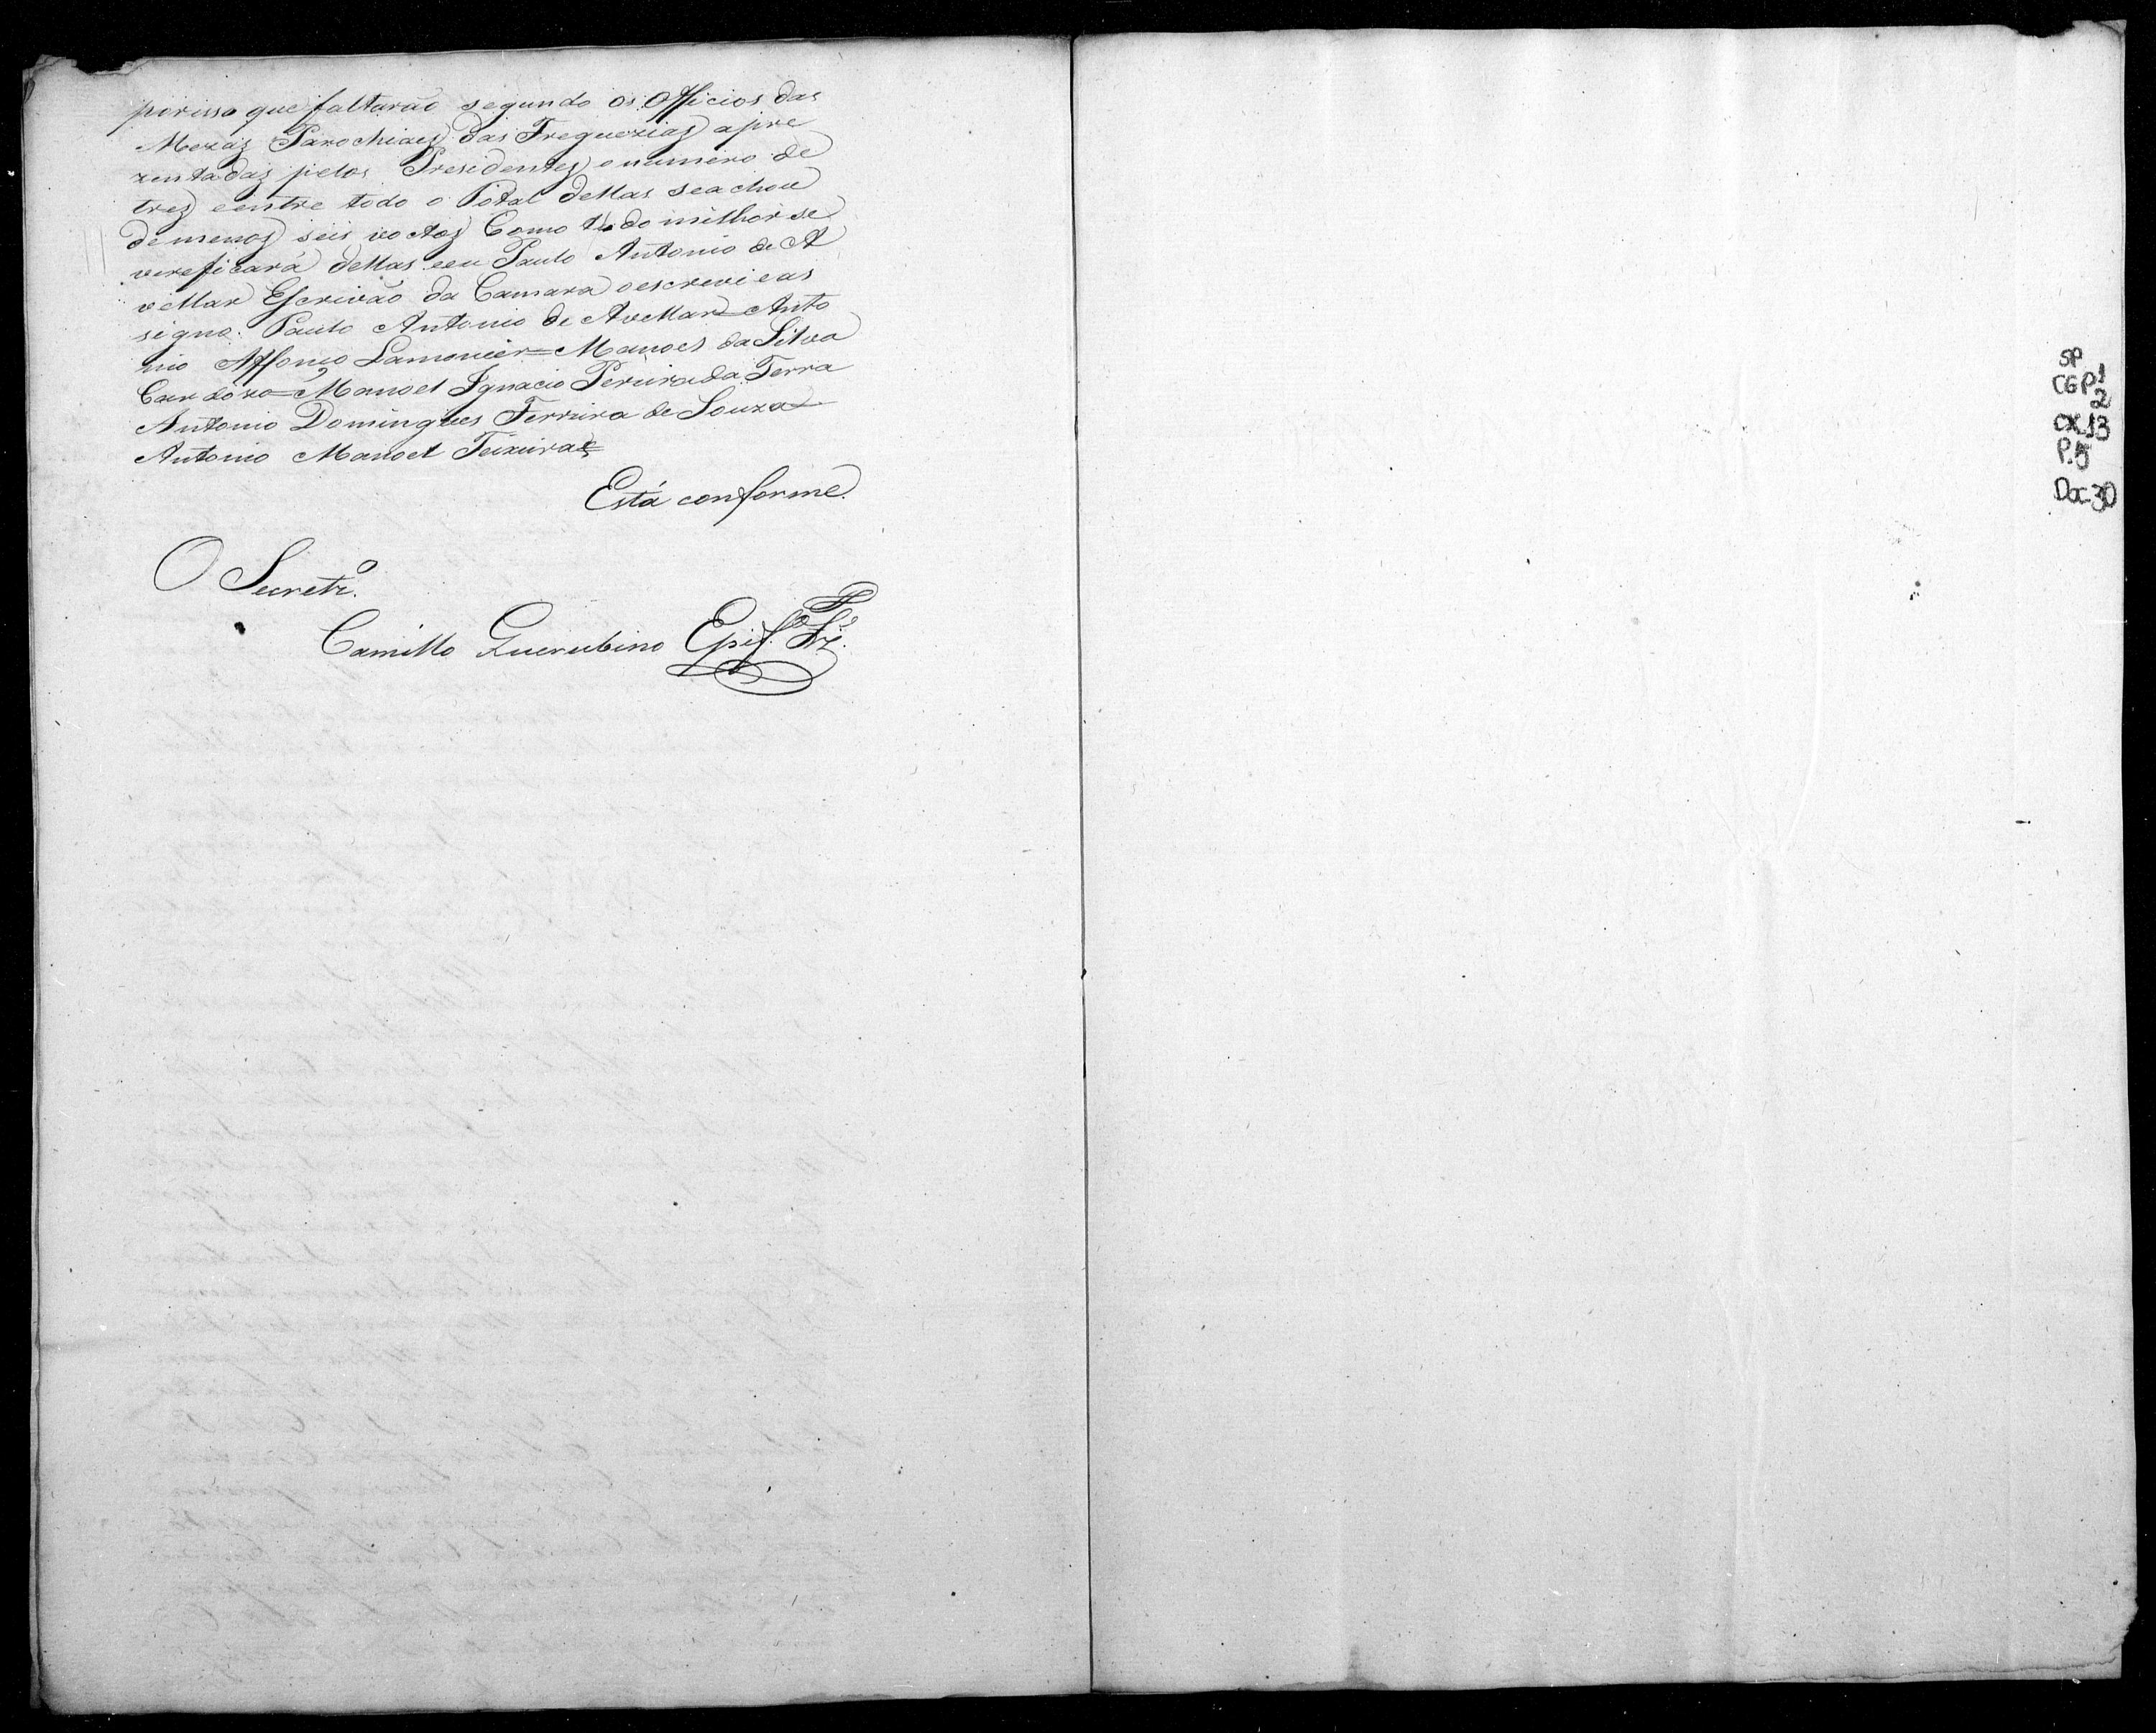 porisso que faltarão segundo os Officios das
Mezas Parochiaes das Freguezias apre
zentadas pelos Presidentes o numero de
trez e entre todo o Total dellas se achou
de menos seis voctos Como tudo milhor se
vereficará dellas eeu Paulo Antonio de A
vellar Escrivão da Camara o escrevi e as
signo. Paulo Antonio de Avellar = Anto
nio Affonço Lamounier = Manoel da Silva
Cardozo = Manoel Ignacio Pereira da Terra
Antonio Domingues Ferreira de Souza =
Antonio Manoel Teixeira =
Está conforme.
O Secretrº.
Camillo Querubino
SP
CGP1
2
CX.13
P.5
Doc-30